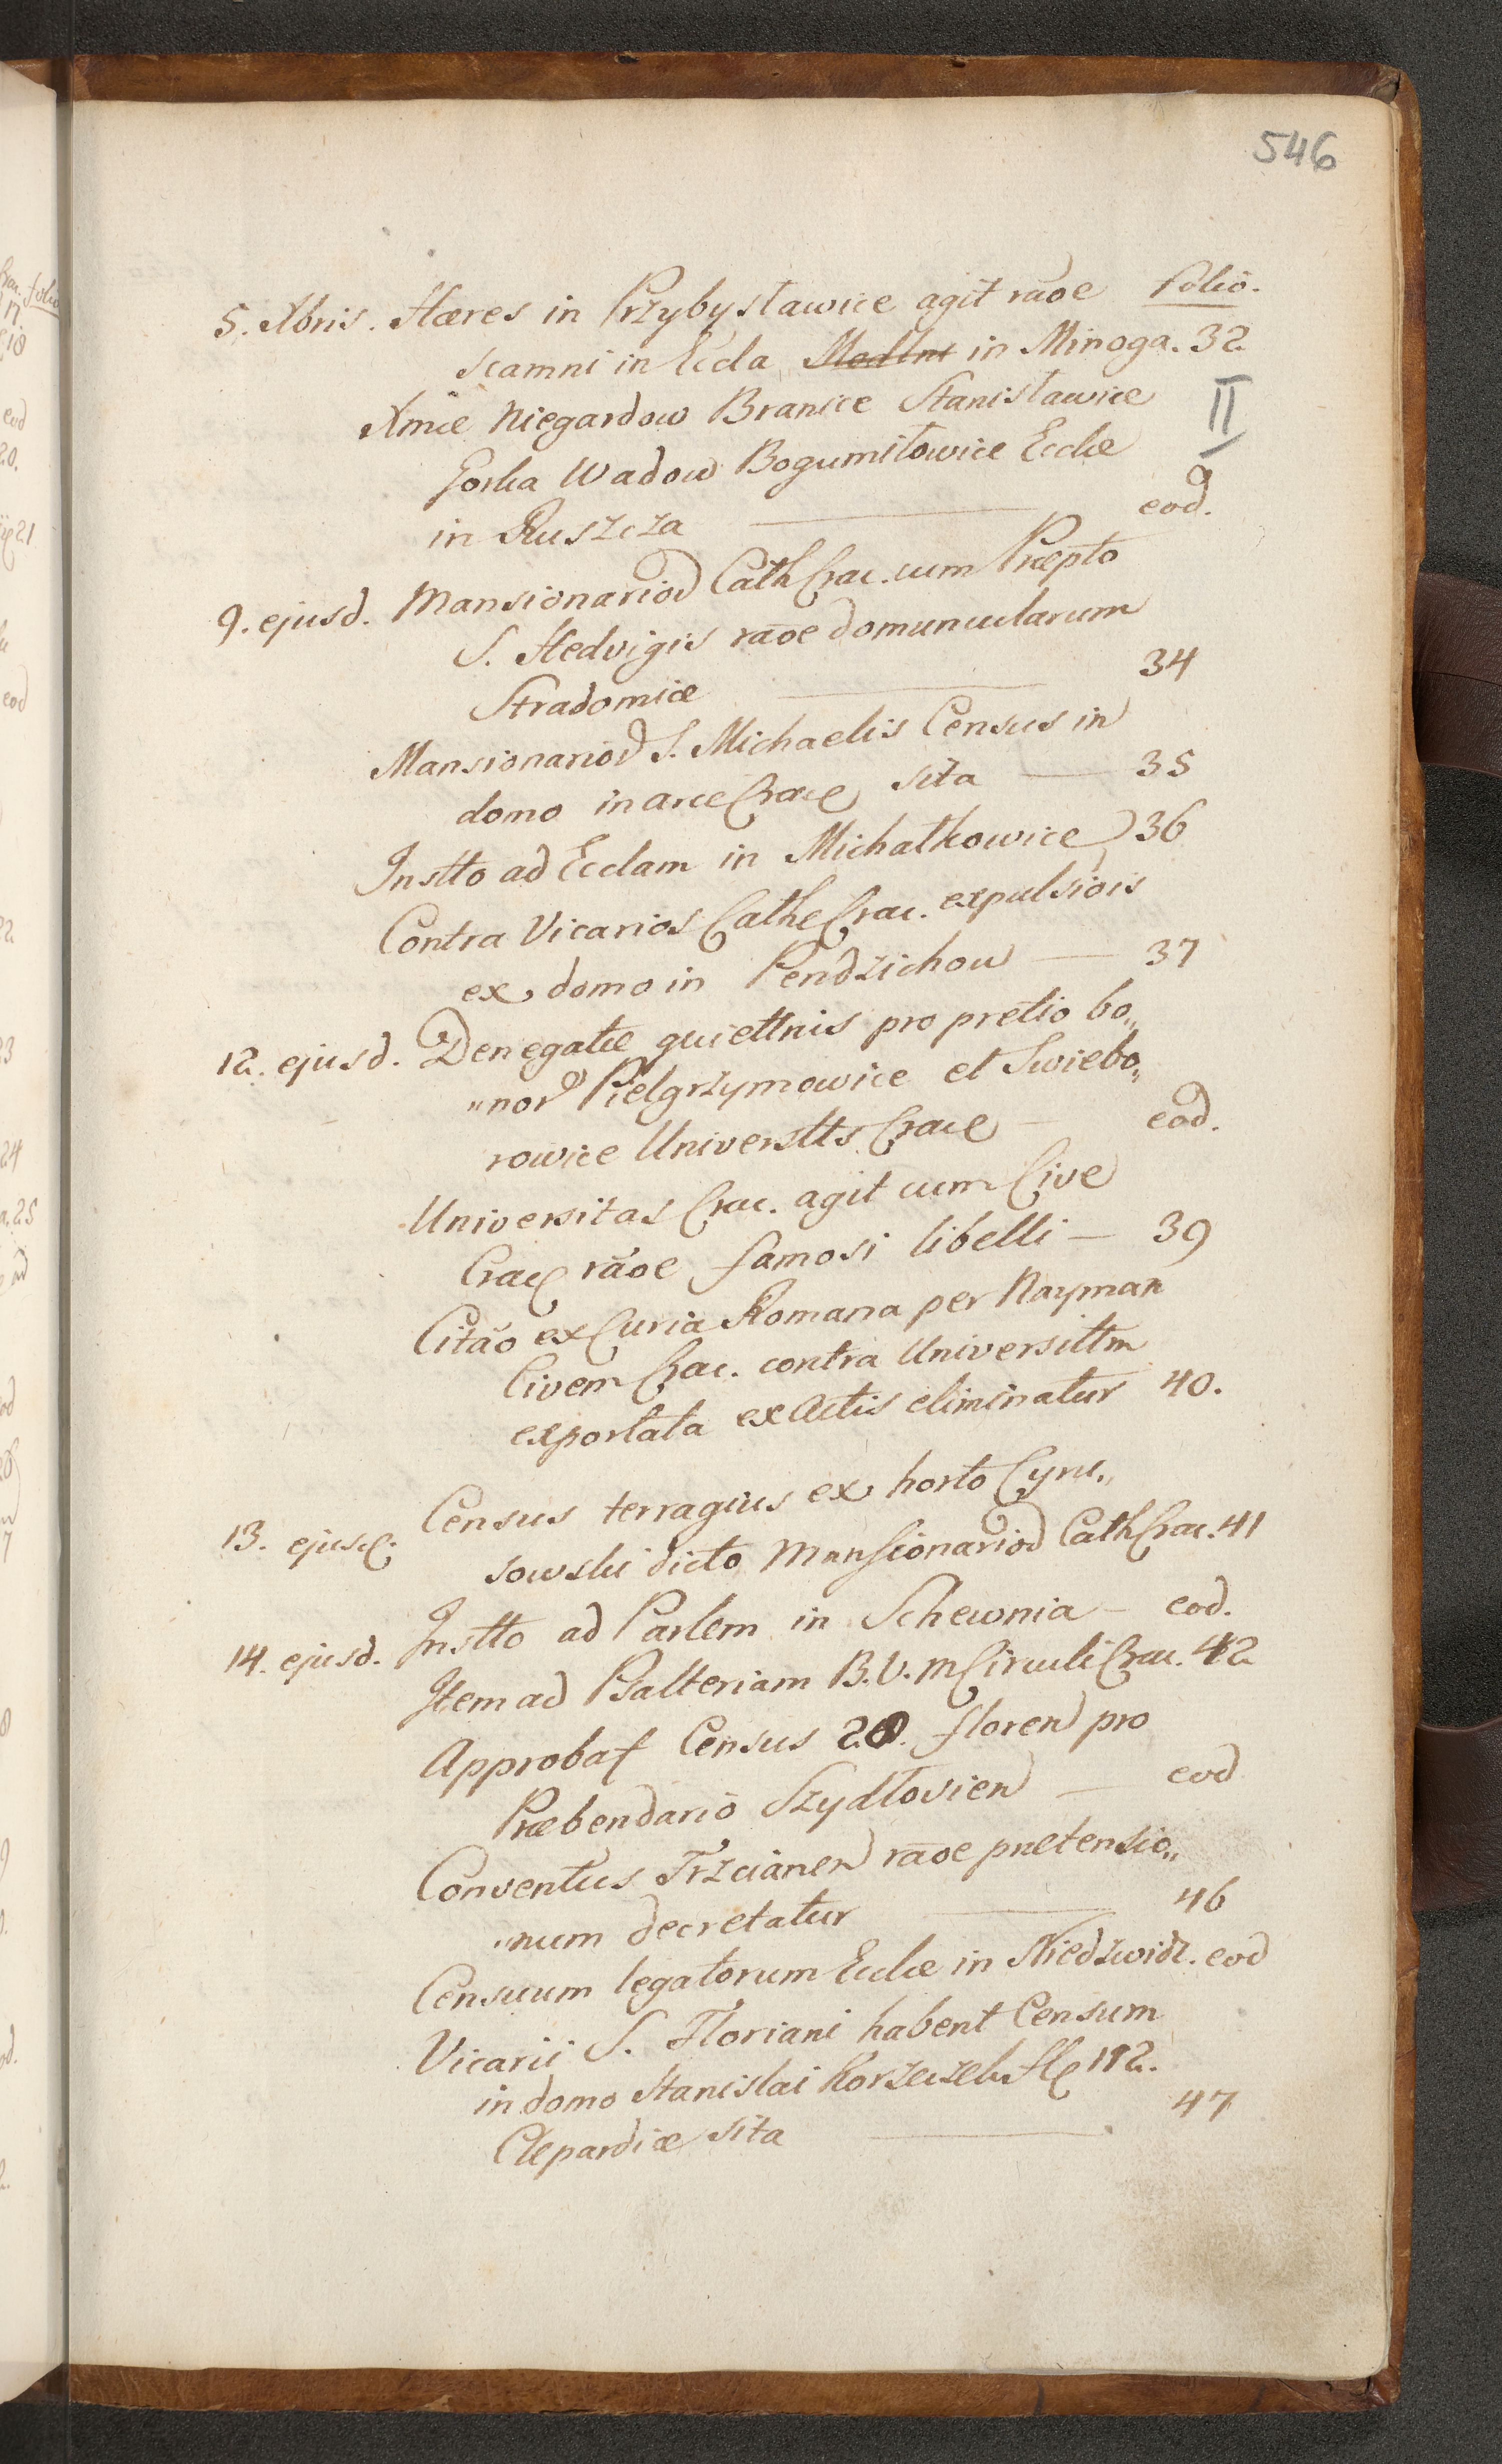 546
5. Xbris. Hæres in Przybysławice agit rãoe folio.
scamni in Eccla Modlni in Minoga. 32
Xmæ Niegardow Branice Stanisławice II
Gorka Wadow Bogumiłowice Ecclæ
in Ruszcza — eod.
9. ejusd. Mansionariod Cath Crac. cum Præpto
S. Hedvigis rãoe domuncularum
Stradomiæ — 34
Mansionariod S. Michaelis Census in
domo in arce Crac sita — 35
Instto ad Ecclam in Michałkowice 36
Contra Vicarios Cathe Crac. expulsiõis
ex domo in Pendzichow — 37
12. ejusd. Denegatæ quiettnis pro pretio bo„
„nor Pielgrzymowice et Swiebo„
rowice Universtts Crac — eod.
Universitas Crac. agit cum Cive
Crac rãoe famosi libelli — 39
Citão ex Curia Romana per Nayman
Civem Crac. contra Universittm
exportata ex Actis eliminatur 40.
Census terragius ex horto Cyru„
13. ejusd. sowski dicto Mansionariod Cath Crac. 41
14. ejusd. Instto ad Parlem in Schewnia — eod.
Item ad Psalteriam B. V. M Circuli Crac. 42
Approbat Census 28. floren pro
Præbendario Szydłovien — eod
Conventus Trzcianen rãoe prætensio„
„num decretatur — 46
Censuum legatorum Ecclæ in Niedzwidz. eod
Vicarii S. Floriani habent Censum
in domo Stanislai Korzeczek fl 192.
Clepardiæ sita — 47